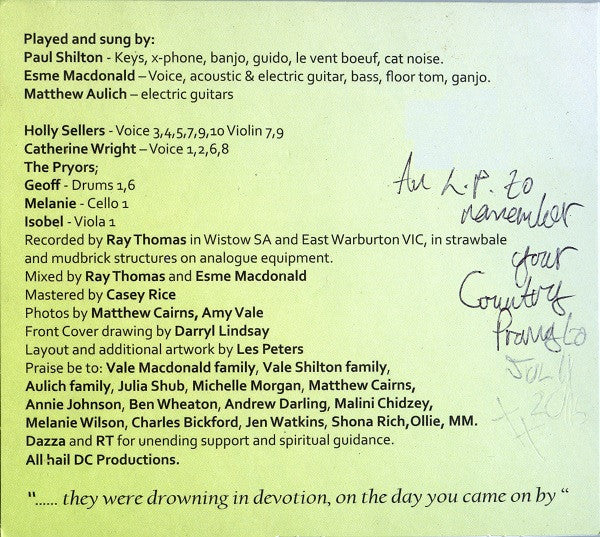 Played and sung by:
Paul Shilton - Keys, x-phone, banjo, guido, le vent boeuf, cat noise.
Esme Macdonald – Voice, acoustic & electric guitar, bass, floor tom, ganjo.
Matthew Aulich – electric guitars
Holly Sellers - Voice 3,4,5,7,9,10 Violin 7,9
Catherine Wright – Voice 1,2,6,8
The Pryors;
Geoff - Drums 1,6
Melanie - Cello 1
Isobel - Viola 1
Recorded by Ray Thomas in Wistow SA and East Warburton VIC, in strawbale
and mudbrick structures on analogue equipment.
Mixed by Ray Thomas and Esme Macdonald
Mastered by Casey Rice
Photos by Matthew Cairns, Amy Vale
Front Cover drawing by Darryl Lindsay
Layout and additional artwork by Les Peters
Praise be to: Vale Macdonald family, Vale Shilton family,
Aulich family, Julia Shub, Michelle Morgan, Matthew Cairns,
Annie Johnson, Ben Wheaton, Andrew Darling, Malini Chidzey,
Melanie Wilson, Charles Bickford, Jen Watkins, Shona Rich,Ollie, MM.
Dazza and RT for unending support and spiritual guidance.
All hail DC Productions.
"...... they were drowning in devotion, on the day you came on by “
An L.P. to
remember
your
Country